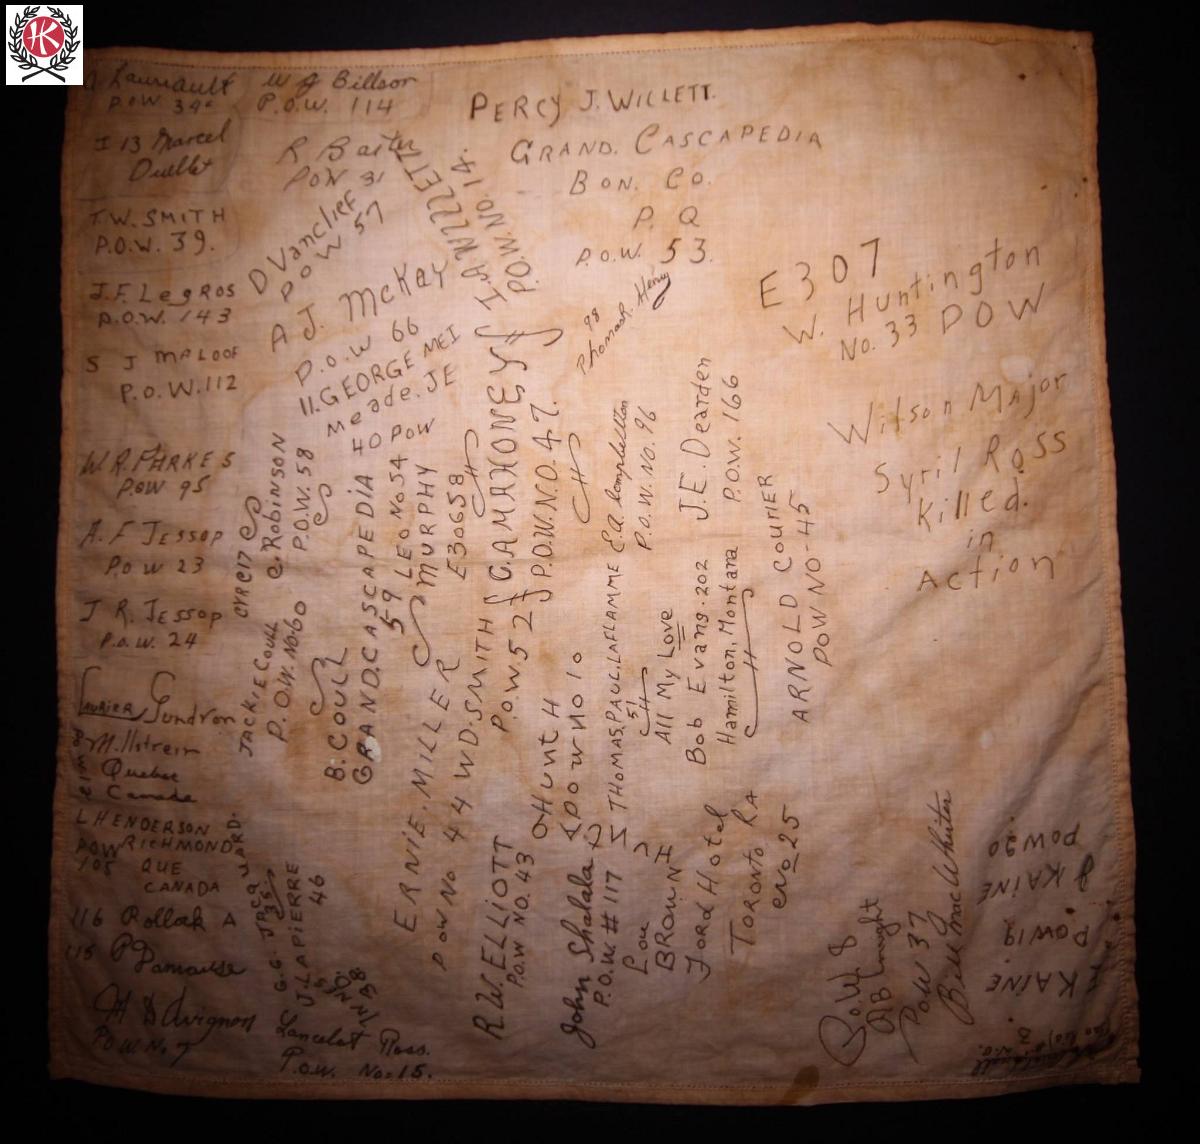 HK
Launault
P.O.W.
W J Billson
P.O.W. 114
I 13 Marcel
Dullet
T.W. SMITH
P.O.W. 39.
J.F. LegROS
P.O.W. 143
S J MALOOF
P.O.W. 112
W.R. PARKES
POW 95
A. F JESSOP
POW 23
J R. JESSOP
P.O.W. 24
LAURIER Gendron
Quebec
Canada
L HENDERSON
POW RICHMOND
105 QUE
CANADA
116 Pollak A
115 P
H D Avignon
P.O.W. No 7
PERCY J. WILLETT.
GRAND. CASCAPEDIA
BON. Co.
P. Q
P.O.W. 53.
R Baiter
POW 31
D Vanclief
POW 57
A J. McKay
P.O.W 66
11. GEORGE MEI
Meade. JE
40 POW
I. A WILLLETT
P.O.W. NO. 14.
98
Henry
E 307
W. Huntington
No. 33 POW
Witson Major
Syril Ross
Killed.
in
Action
JACKIE COULL
P.O.W. No. 60
C. ROBINSON
P.O.W. 58
B. COULL
GRAND. CASCAPEDIA
59 LEO No 54
MURPHY
E30658
C. A MAHONEY
P.O.W. N.O. 47.
ERNIE. MILLER
POW No 44
W.D. SMITH
P.O.W 52
Hunt H
POW NO 10
THOMAS. PAUL. LAFLAMME
51
E.A.
P.O.W. No. 96
All My Love
Bob Evans. 202
Hamilton, Montana
J. E. Dearden
P.O.W. 166
ARNOLD COURIER
POW NO - 45
R.W. ELLIOTT
P.O.W NO. 43
John Shalala
P.O.W. # 117
Lou
BROWN
Ford Hotel
TORONTO
No 25
G. G. JACQUARD.
J. LAPIERRE
46
Lancelot Ross.
P.O.W. No. 15.
P.O.W 8
AB
POW 37
Bill Mac Whirter
J KAINE
POW 20
KAINE
POW 19